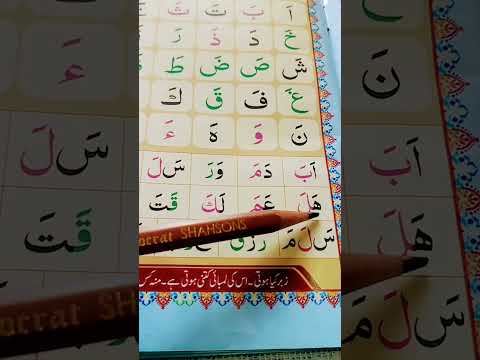 اَ بَ تَ ثَ
خَ دَ ذَ رَ
شَ صَ ضَ طَ
غَ فَ قَ كَ
نَ وَ هَ ءَ
اَبَ دَمَ وَرَ سَلَ
هَلَ عَمَ لَكَ قَتَ
سَلَمَ رَزَقَ
ocrat SHAHSONS
زبر کیا ہوتی ۔ اس کی لمبائی کتنی ہوتی ہے ۔ منہ کس